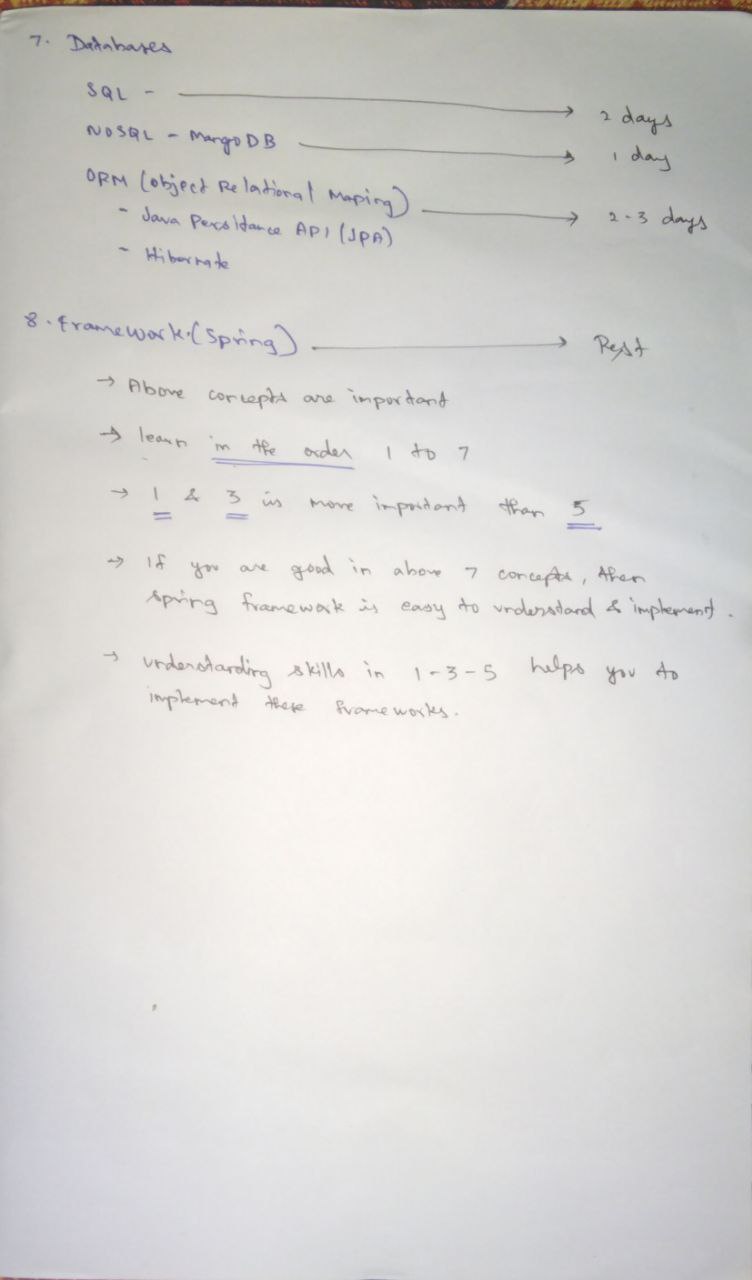 7. Databases
SQL - → 2 days
NOSQL - MangoDB → 1 day
ORM (object Relational Maping) → 2-3 days
- Java Persistance API (JPA)
- Hibernate
8. Framework.(Spring) → Rest
→ Above concepts are important
→ learn in the order 1 to 7
→ 1 & 3 is more important than 5
→ If you are good in above 7 concepts, then
spring framework is easy to understand & implement.
→ understanding skills in 1-3-5 helps you to
implement these frameworks.